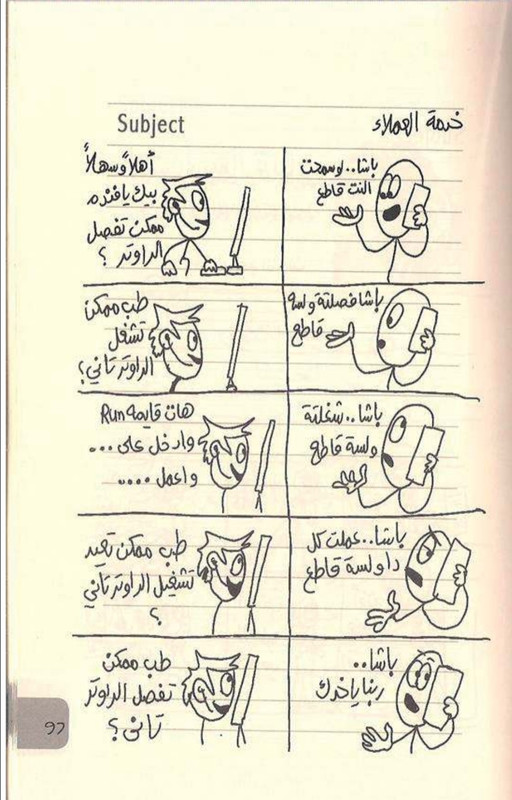 Subject
خدمة العملاء
باشا.. لو سمحت
النت قاطع
أهلاً وسهلاً
بيك يافندم
ممكن تفصل
الراوتر ؟
باشا فصلته ولسه
قاطع
طب ممكن
تشغل
الراوتر تاني؟
باشا.. شغلتة
ولسة قاطع
هات قايمة Run
وادخل على ...
واعمل ....
باشا.. عملت كل
دا ولسة قاطع
طب ممكن تعيد
تشغيل الراوتر تاني
؟
باشا..
ربنا ياخدك
طب ممكن
تفصل الراوتر
تانى ؟
97